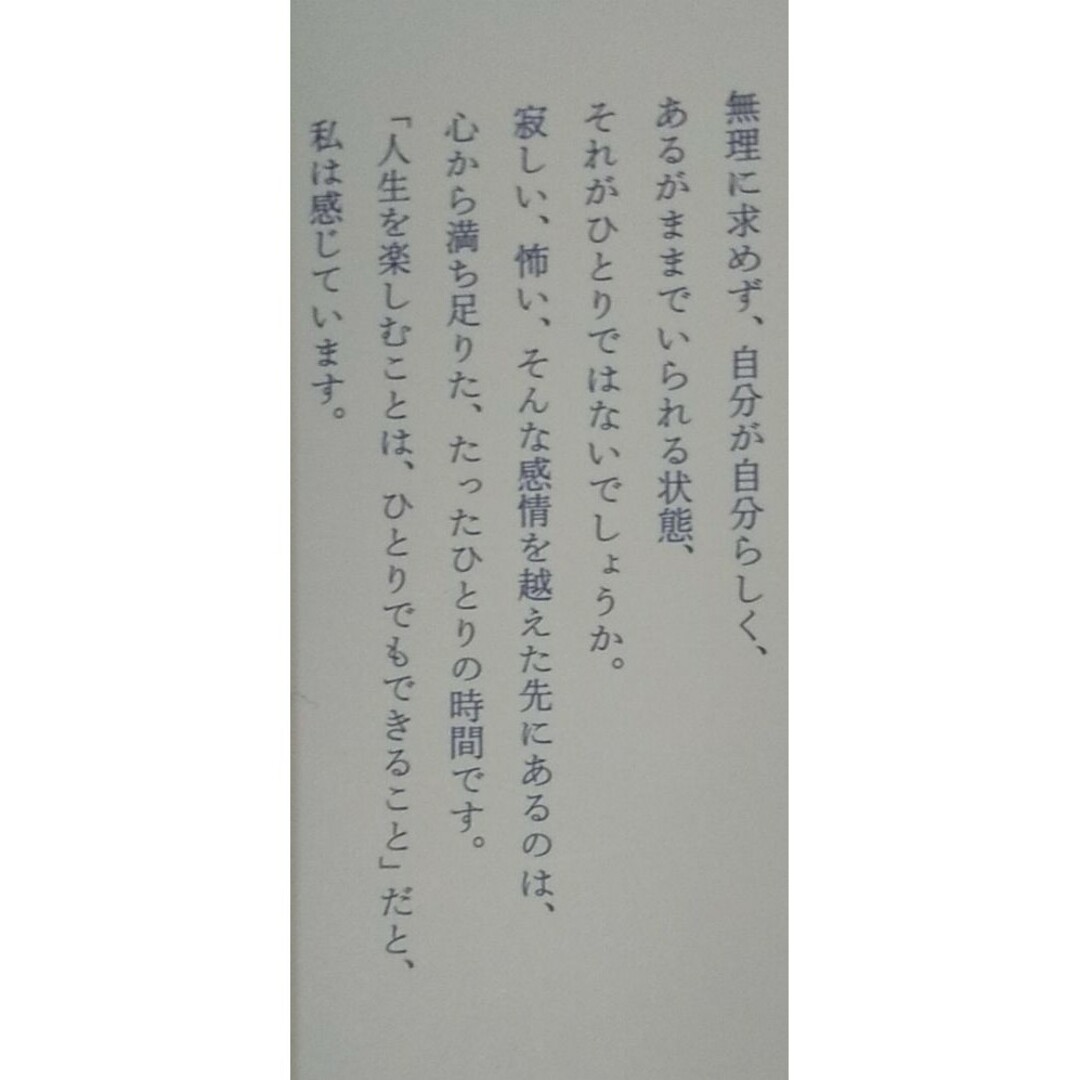 無理に求めず、自分が自分らしく、
あるがままでいられる状態、
それがひとりではないでしょうか。
寂しい、怖い、そんな感情を越えた先にあるのは、
心から満ち足りた、たったひとりの時間です。
「人生を楽しむことは、ひとりでもできること」だと、
私は感じています。